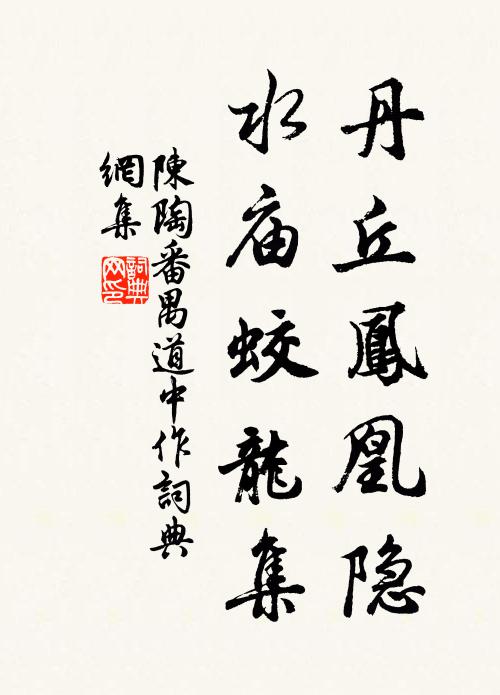 丹丘鳳凰隐
水庙蛟龍集
陳陶番禺道中作詞典
網集
詞典
网印